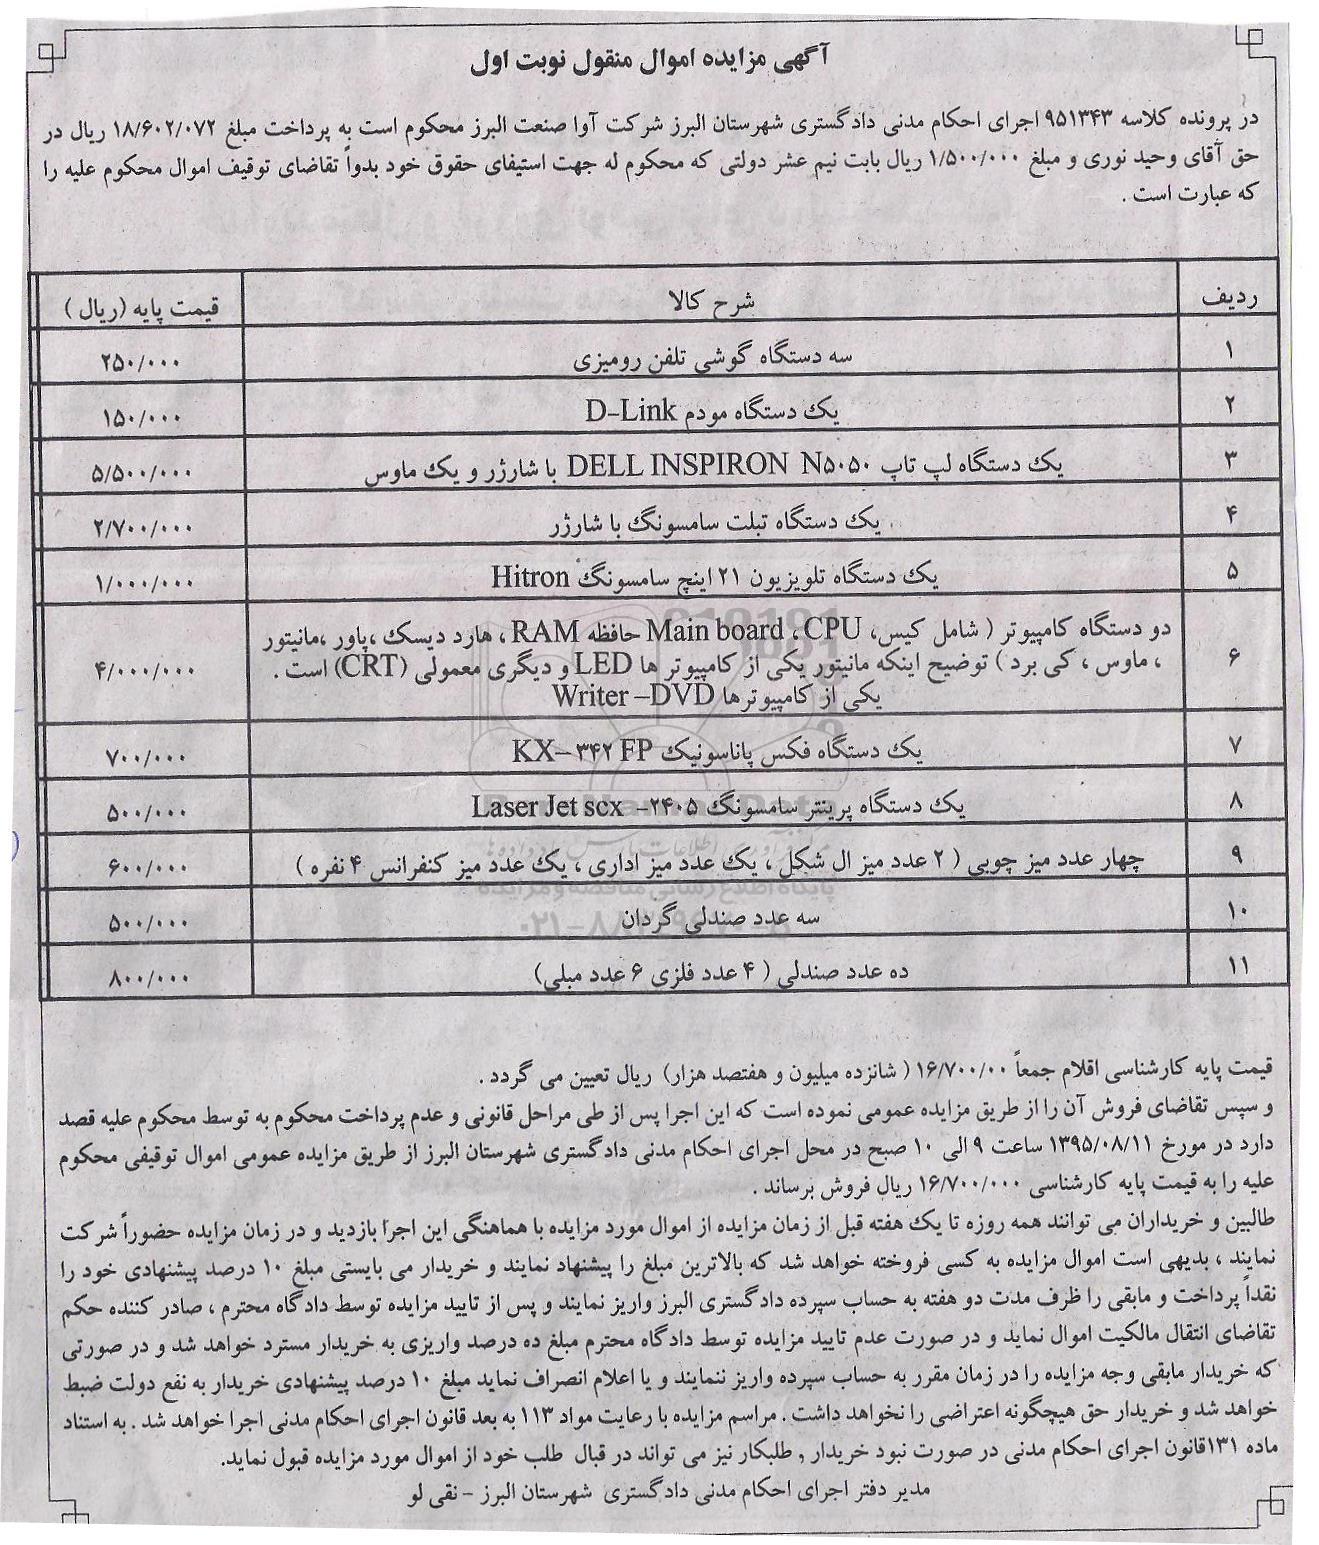 آگهی مزایده اموال منقول نوبت اول
در پرونده کلاسه ۹۵۱۳۴۳ اجرای احکام مدنی دادگستری شهرستان البرز شرکت آوا صنعت البرز محکوم است به پرداخت مبلغ ۱۸/۶۰۲/۰۷۲ ریال در
حق آقای وحید نوری و مبلغ ۱/۵۰۰/۰۰۰ ریال بابت نیم عشر دولتی که محکوم له جهت استیفای حقوق خود بدواً تقاضای توقیف اموال محکوم علیه را
که عبارت است .
ردیف شرح کالا قیمت پایه (ریال )
۱ سه دستگاه گوشی تلفن رومیزی ۲۵۰/۰۰۰
۲ یک دستگاه مودم D-Link ۱۵۰/۰۰۰
۳ یک دستگاه لپ تاپ DELL INSPIRON N۵۰۵۰ با شارژر و یک ماوس ۵/۵۰۰/۰۰۰
۴ یک دستگاه تبلت سامسونگ با شارژر ۲/۷۰۰/۰۰۰
۵ یک دستگاه تلویزیون ۲۱ اینچ سامسونگ Hitron ۱/۰۰۰/۰۰۰
دو دستگاه کامپیوتر ( شامل کیس، Main board ، CPU حافظه RAM ، هارد دیسک ،پاور ،مانیتور
۶ ، ماوس ، کی برد ) توضیح اینکه مانیتور یکی از کامپیوتر ها LED و دیگری معمولی (CRT) است . ۴/۰۰۰/۰۰۰
یکی از کامپیوترها Writer –DVD
۷ یک دستگاه فکس پاناسونیک KX– ۳۴۲ FP ۷۰۰/۰۰۰
۸ یک دستگاه پرینتر سامسونگ Laser Jet scx –۲۴۰۵ ۵۰۰/۰۰۰
۹ چهار عدد میز چوبی ( ۲ عدد میز ال شکل ، یک عدد میز اداری ، یک عدد میز کنفرانس ۴ نفره ) ۶۰۰/۰۰۰
۱۰ سه عدد صندلی گردان ۵۰۰/۰۰۰
۱۱ ده عدد صندلی ( ۴ عدد فلزی ۶ عدد مبلی) ۸۰۰/۰۰۰
پایگاه اطلاع رسانی مناقصه و مزایده
قیمت پایه کارشناسی اقلام جمعاً ۱۶/۷۰۰/۰۰ ( شانزده میلیون و هفتصد هزار) ریال تعیین می گردد .
و سپس تقاضای فروش آن را از طریق مزایده عمومی نموده است که این اجرا پس از طی مراحل قانونی و عدم پرداخت محکوم به توسط محکوم علیه قصد
دارد در مورخ ۱۳۹۵/۰۸/۱۱ ساعت ۹ الی ۱۰ صبح در محل اجرای احکام مدنی دادگستری شهرستان البرز از طریق مزایده عمومی اموال توقیفی محکوم
علیه را به قیمت پایه کارشناسی ۱۶/۷۰۰/۰۰۰ ریال فروش برساند .
طالبین و خریداران می توانند همه روزه تا یک هفته قبل از زمان مزایده از اموال مورد مزایده با هماهنگی این اجرا بازدید و در زمان مزایده حضوراً شرکت
نمایند ، بدیهی است اموال مزایده به کسی فروخته خواهد شد که بالاترین مبلغ را پیشنهاد نمایند و خریدار می بایستی مبلغ ۱۰ درصد پیشنهادی خود را
نقداً پرداخت و مابقی را ظرف مدت دو هفته به حساب سپرده دادگستری البرز واریز نمایند و پس از تایید مزایده توسط دادگاه محترم ، صادر کننده حکم
تقاضای انتقال مالکیت اموال نماید و در صورت عدم تایید مزایده توسط دادگاه محترم مبلغ ده درصد واریزی به خریدار مسترد خواهد شد و در صورتی
که خریدار مابقی وجه مزایده را در زمان مقرر به حساب سپرده واریز ننمایند و یا اعلام انصراف نماید مبلغ ۱۰ درصد پیشنهادی خریدار به نفع دولت ضبط
خواهد شد و خریدار حق هیچگونه اعتراضی را نخواهد داشت . مراسم مزایده با رعایت مواد ۱۱۳ به بعد قانون اجرای احکام مدنی اجرا خواهد شد . به استناد
ماده ۱۳۱قانون اجرای احکام مدنی در صورت نبود خریدار , طلبکار نیز می تواند در قبال طلب خود از اموال مورد مزایده قبول نماید.
مدیر دفتر اجرای احکام مدنی دادگستری شهرستان البرز – نقی لو